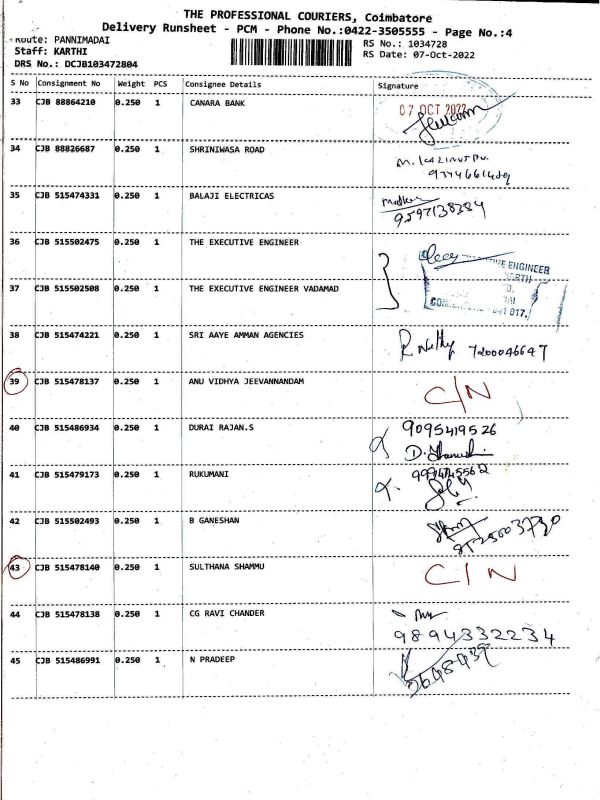 THE PROFESSIONAL COURIERS, Coimbatore
Delivery Runsheet - PCM - Phone No.:0422-3505555 - Page No.:4
Route: PANNIMADAI
RS No.: 1034728
Staff: KARTHI
RS Date: 07-Oct-2022
DRS No.: DCJB103472804
S No Consignment No Weight PCS Consignee Details Signature
33 CJB 88864210 0.250 1 CANARA BANK
07 OCT 2022
34 CJB 88826687 0.250 1 SHRINIWASA ROAD
35 CJB 515474331 0.250 1 BALAJI ELECTRICAS
9597138384
36 CJB 515502475 0.250 1 THE EXECUTIVE ENGINEER
ENGINEER
37 CJB 515502508 0.250 1 THE EXECUTIVE ENGINEER VADAMAD
38 CJB 515474221 0.250 1 SRI AAYE AMMAN AGENCIES
7200046647
39 CJB 515478137 0.250 1 ANU VIDHYA JEEVANNANDAM C/N
40 CJB 515486934 0.250 1 DURAI RAJAN.S 9095419526
41 CJB 515479173 0.250 1 RUKUMANI
42 CJB 515502493 0.250 1 B GANESHAN
43 CJB 515478140 0.250 1 SULTHANA SHAMMU C/N
44 CJB 515478138 0.250 1 CG RAVI CHANDER
9894332234
45 CJB 515486991 0.250 1 N PRADEEP